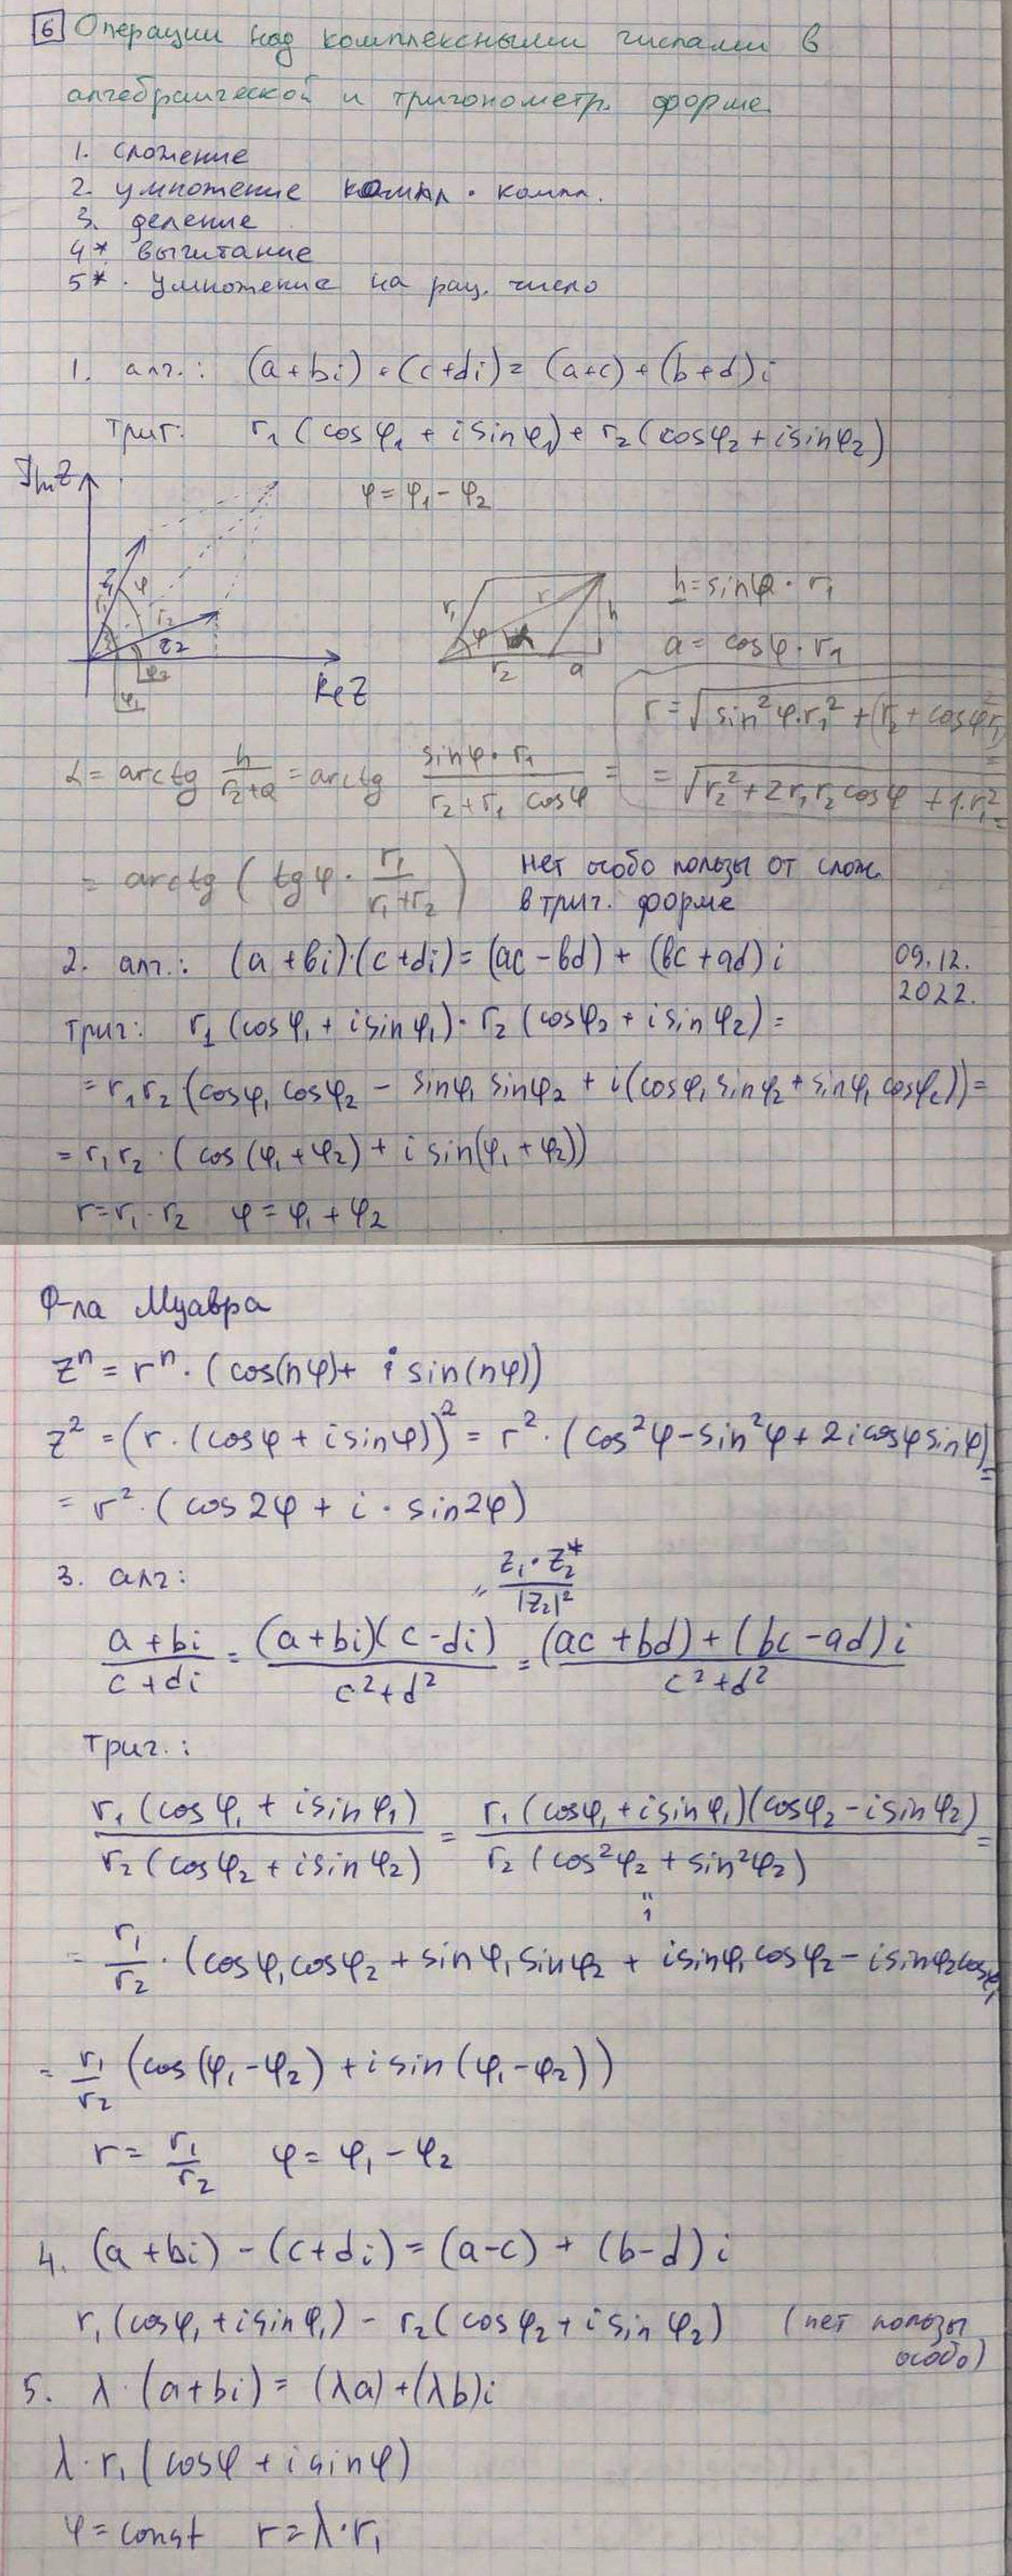 6 Операции над комплексными числами в
алгебраической и тригонометр. форме.
1. сложение
2. умножение компл • компл.
3. деление
4* вычитание
5* умножение на рац. число
1. алг.: (a+bi)+(c+di)=(a+c)+(b+d)i
триг: r₁(cosφ₁+isinφ₁)+r₂(cosφ₂+isinφ₂)
ImZ
φ=φ₁-φ₂
z₁ φ r₁ r₂ z₂
φ₂
φ₁
ReZ
r₁ r h
φ α
r₂ a
h=sinφ·r₁
a=cosφ·r₁
r=√(sin²φ·r₁²+(r₂+cosφr₁)²)=
=√(r₂²+2r₁r₂cosφ+1·r₁²)=
α=arctg h/(r₂+a)=arctg (sinφ·r₁)/(r₂+r₁cosφ)=
=arctg(tgφ·r₁/(r₁+r₂))
нет особо пользы от слож.
в триг. форме
2. алг.: (a+bi)·(c+di)=(ac-bd)+(bc+ad)i
09.12.
2022.
триг: r₁(cosφ₁+isinφ₁)·r₂(cosφ₂+isinφ₂)=
=r₁r₂(cosφ₁cosφ₂-sinφ₁sinφ₂+i(cosφ₁sinφ₂+sinφ₁cosφ₂))=
=r₁r₂·(cos(φ₁+φ₂)+isin(φ₁+φ₂))
r=r₁·r₂ φ=φ₁+φ₂
Ф-ла Муавра
zⁿ=rⁿ·(cos(nφ)+isin(nφ))
z²=(r·(cosφ+isinφ))²=r²·(cos²φ-sin²φ+2icosφsinφ)=
=r²·(cos2φ+i·sin2φ)
3. алг:
" z₁·z₂*/|z₂|²
(a+bi)/(c+di)=((a+bi)(c-di))/(c²+d²)=((ac+bd)+(bc-ad)i)/(c²+d²)
триг.:
(r₁(cosφ₁+isinφ₁))/(r₂(cosφ₂+isinφ₂))=(r₁(cosφ₁+isinφ₁)(cosφ₂-isinφ₂))/(r₂(cos²φ₂+sin²φ₂))=
" 1
=r₁/r₂·(cosφ₁cosφ₂+sinφ₁sinφ₂+isinφ₁cosφ₂-isinφ₂cosφ₁
=r₁/r₂(cos(φ₁-φ₂)+isin(φ₁-φ₂))
r=r₁/r₂ φ=φ₁-φ₂
4. (a+bi)-(c+di)=(a-c)+(b-d)i
r₁(cosφ₁+isinφ₁)-r₂(cosφ₂+isinφ₂) (нет пользы
особо)
5. λ·(a+bi)=(λa)+(λb)i
λ·r₁(cosφ+isinφ)
φ=const r=λ·r₁